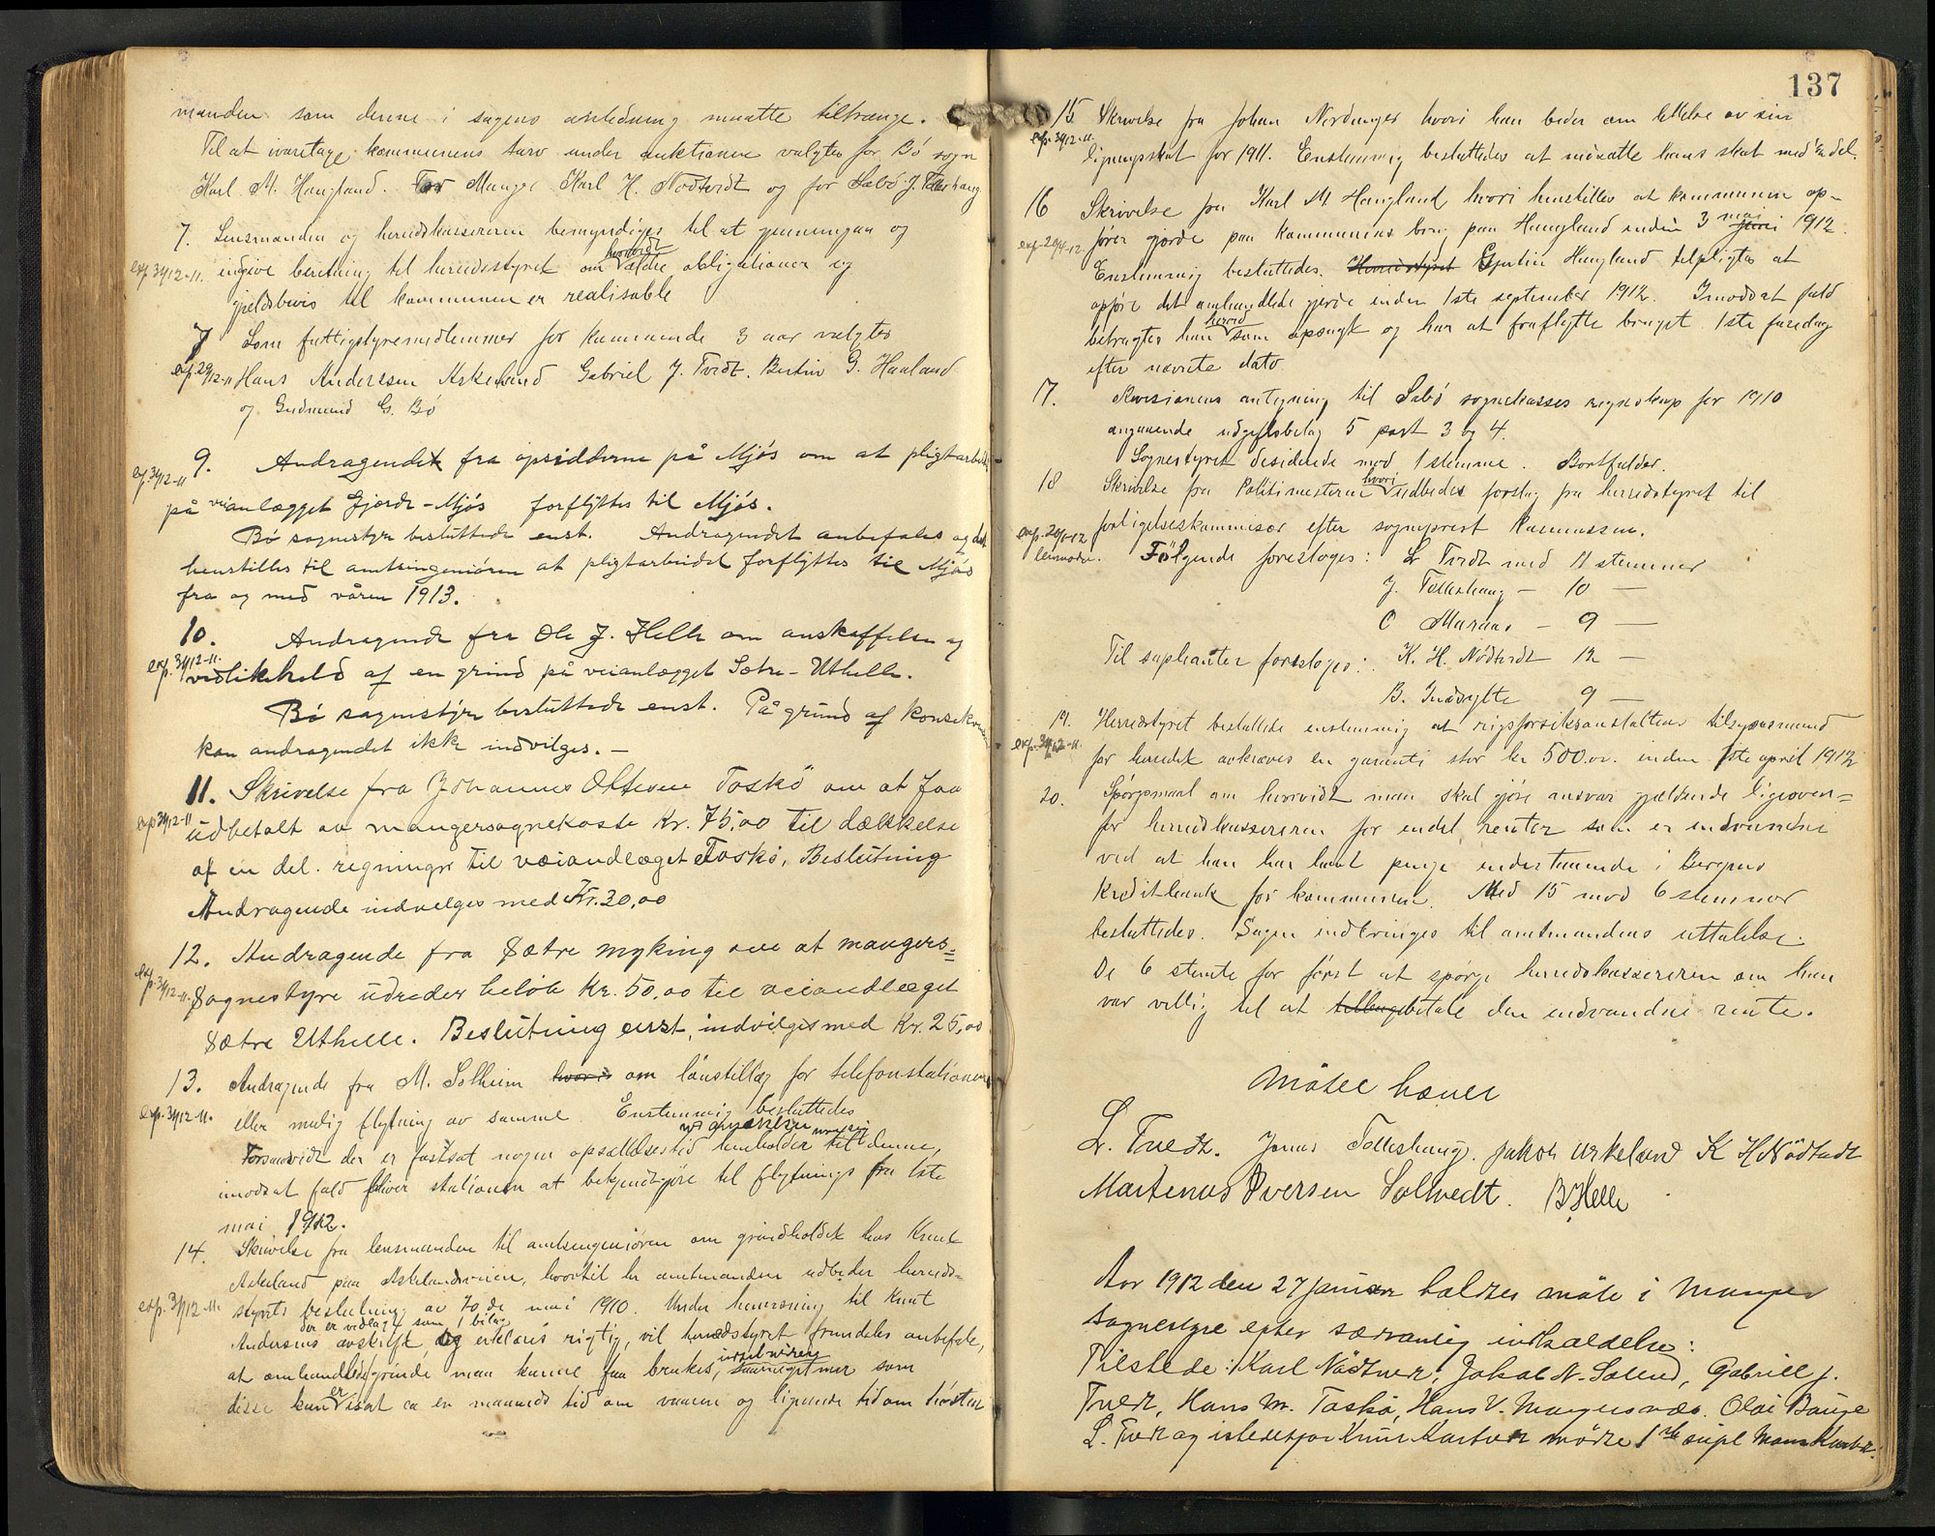 manden som denne i sagens anledning maatte tiltrænge.
Til at ivaretage kommunens tarv under auktionen valgtes for Bö sogn
Karl M. Haugland. For Manger Karl H. Nödtvedt og for Sæbö J. Tolleshaug
7. Lensmanden og herredskassereren bemyndiges til at gjennemgaa og
exp. 30/12-11. indgive beretning til herredsstyret om hvorvidt ældre obligationer og
gjeldsbevis til kommunen er realisable
7 Som fattigstyremedlemmer for kommende 3 aar valgtes
exp 29/12-11 Hans Anderssen Askeland Gabriel J. Tvedt. Bertin G. Haaland
og Gudmund G. Bö
exp. 30/12-11 9. Andragendet fra opsidderne på Mjös om at pligtarbeide
på veianlægget Gjerde-Mjös forflyttes til Mjös.
Bö sognestyre besluttede enst. Andragendet anbefales og det
henstilles til amtsingeniören at pligtarbeidet forflyttes til Mjös
fra og med våren 1913.
10. Andragende fra Ole J. Helle om anskaffelse og
exp. 30/12-11. vedlikehold af en grind på veianlægget Sætre-Uthelle.
Bö sognestyre besluttede enst. På grund af konsekvensen
kan andragendet ikke indvilges. —
11. Skrivelse fra Johannes Olssen Toskö om at faa
exp 30/12-11 udbetalt av mangersognekasse Kr. 75,00 til dækkelse
af en del. regninger til væiandlæget Toskö, Beslutning
Andragende indvelges med Kr. 30,00
12. Andragende fra Sætre myking om at mangers=
exp. 30/12-11. Sognestyre udreder beløb Kr. 50,00 til veiandlæget
Sætre Uthelle. Beslutning enst, indvilges med Kr. 25,00
13. Andragende fra M. Solheim hvoris om lönstillæg for telefonstationen
exp. 30/12-11. eller mulig flytning av samme Enstemmig besluttedes
Forsaavidt der er fastsat nogen opsættelsestid henholder til denne,
imodsat fald bliver stationen at bekjendtgjöre til flytnings fra 1ste
mai 1912.
14. Skrivelse fra lensmanden til amtsingeniören om grindholdet hos Knut
Askeland paa Askelandsveien, hvortil hr amtmanden udbeder herreds-
exp. 30/12-11. styrets beslutning av 20de mai 1910. Under henvisning til Knut
der er vedlagt som 1 bilag
Andersens avskrift, og erklæres rigtig, vil herredsstyret fremdeles anbefale,
at omhandlede grinde maa kunne faa brukes, som
disse kun er isat ca en maaneds tid om vaaren og lignende tid om hösten
137
15 Skrivelse fra Johan Nordanger hvori han beder om lettelse av sin
exp. 30/12-11. ligningsskat for 1911. Enstemmig besluttedes at nedsætte hans skat med ½ del.
16 Skrivelse fra Karl M. Haugland hvori henstilles at kommunen op-
exp. 20/4-12 fører gjerde paa kommunens brug paa Haugland inden 3 mai 1912.
Enstemmig besluttedes. Herredsstyret Bertin Haugland tilpligtes at
opføre det omhandlede gjerde inden 1ste september 1912. Imodsat fald
betragtes han herved som opsagt og har at fraflytte bruget 1ste faredag
efter nævnte dato
17. Revisionens antegning til Sæbö sognekasses regnskap for 1910
angaaende udgiftsbilag 5 post 3 og 4.
Sognestyret desiderede mod 1 stemme. Bortfalder.
18 Skrivelse fra Politimesteren hvori udbedes forslag fra herredsstyret til
forligelseskommisær efter sogneprest Rasmussen.
exp. 20/1-12 Følgende foresloges: L Tvedt med 11 stemmer
J. Tolleshaug — 10 —
O Marøas - 9 —
Til suplianter foresloges: K. H. Nödtvedt 12 —
B. Indsylte 9 —
19. Herredstyret besluttede enstemmig at rigsforsikranstaltens tilsynsmand
exp. 30/12-11. for herredet avkræves en garanti stor kr 500.00. inden 1ste april 1912
20. Spörgsmaal om hvorvidt man skal gjöre ansvar gjældende ligeoven=
for herredskassereren for endel renter som er indvundne
ved at han har havt penge indestaaende i Bergens
Kreditbank for kommunen. Med 15 mod 6 stemmer
besluttedes. Sagen indbringes til amtmandens uttalelse.
De 6 stemte for först at spörge herredskassereren om han
var villig til at tilbagebetale den indvundne rente.
Møtet hævet
L. Tvedt. Jonas Tolleshaug. Jakob Askeland K H Nödtvedt
Martenus Iversen Soltvedt. B. Helle
Aar 1912 den 27 Januar holdtes möte i Manger
Sognestyre efter sædvanlig indkaldelse:
Tilstede: Karl Nödtvedt, Jakob N. Solend, Gabriell J.
Tvedt, Hans M. Toskö, Hans V. Mangersnæs. Olai Bauge
L. Tvedt og istedetfor Knut Kartvedt mödte 1ste supl Mons Kvalv.